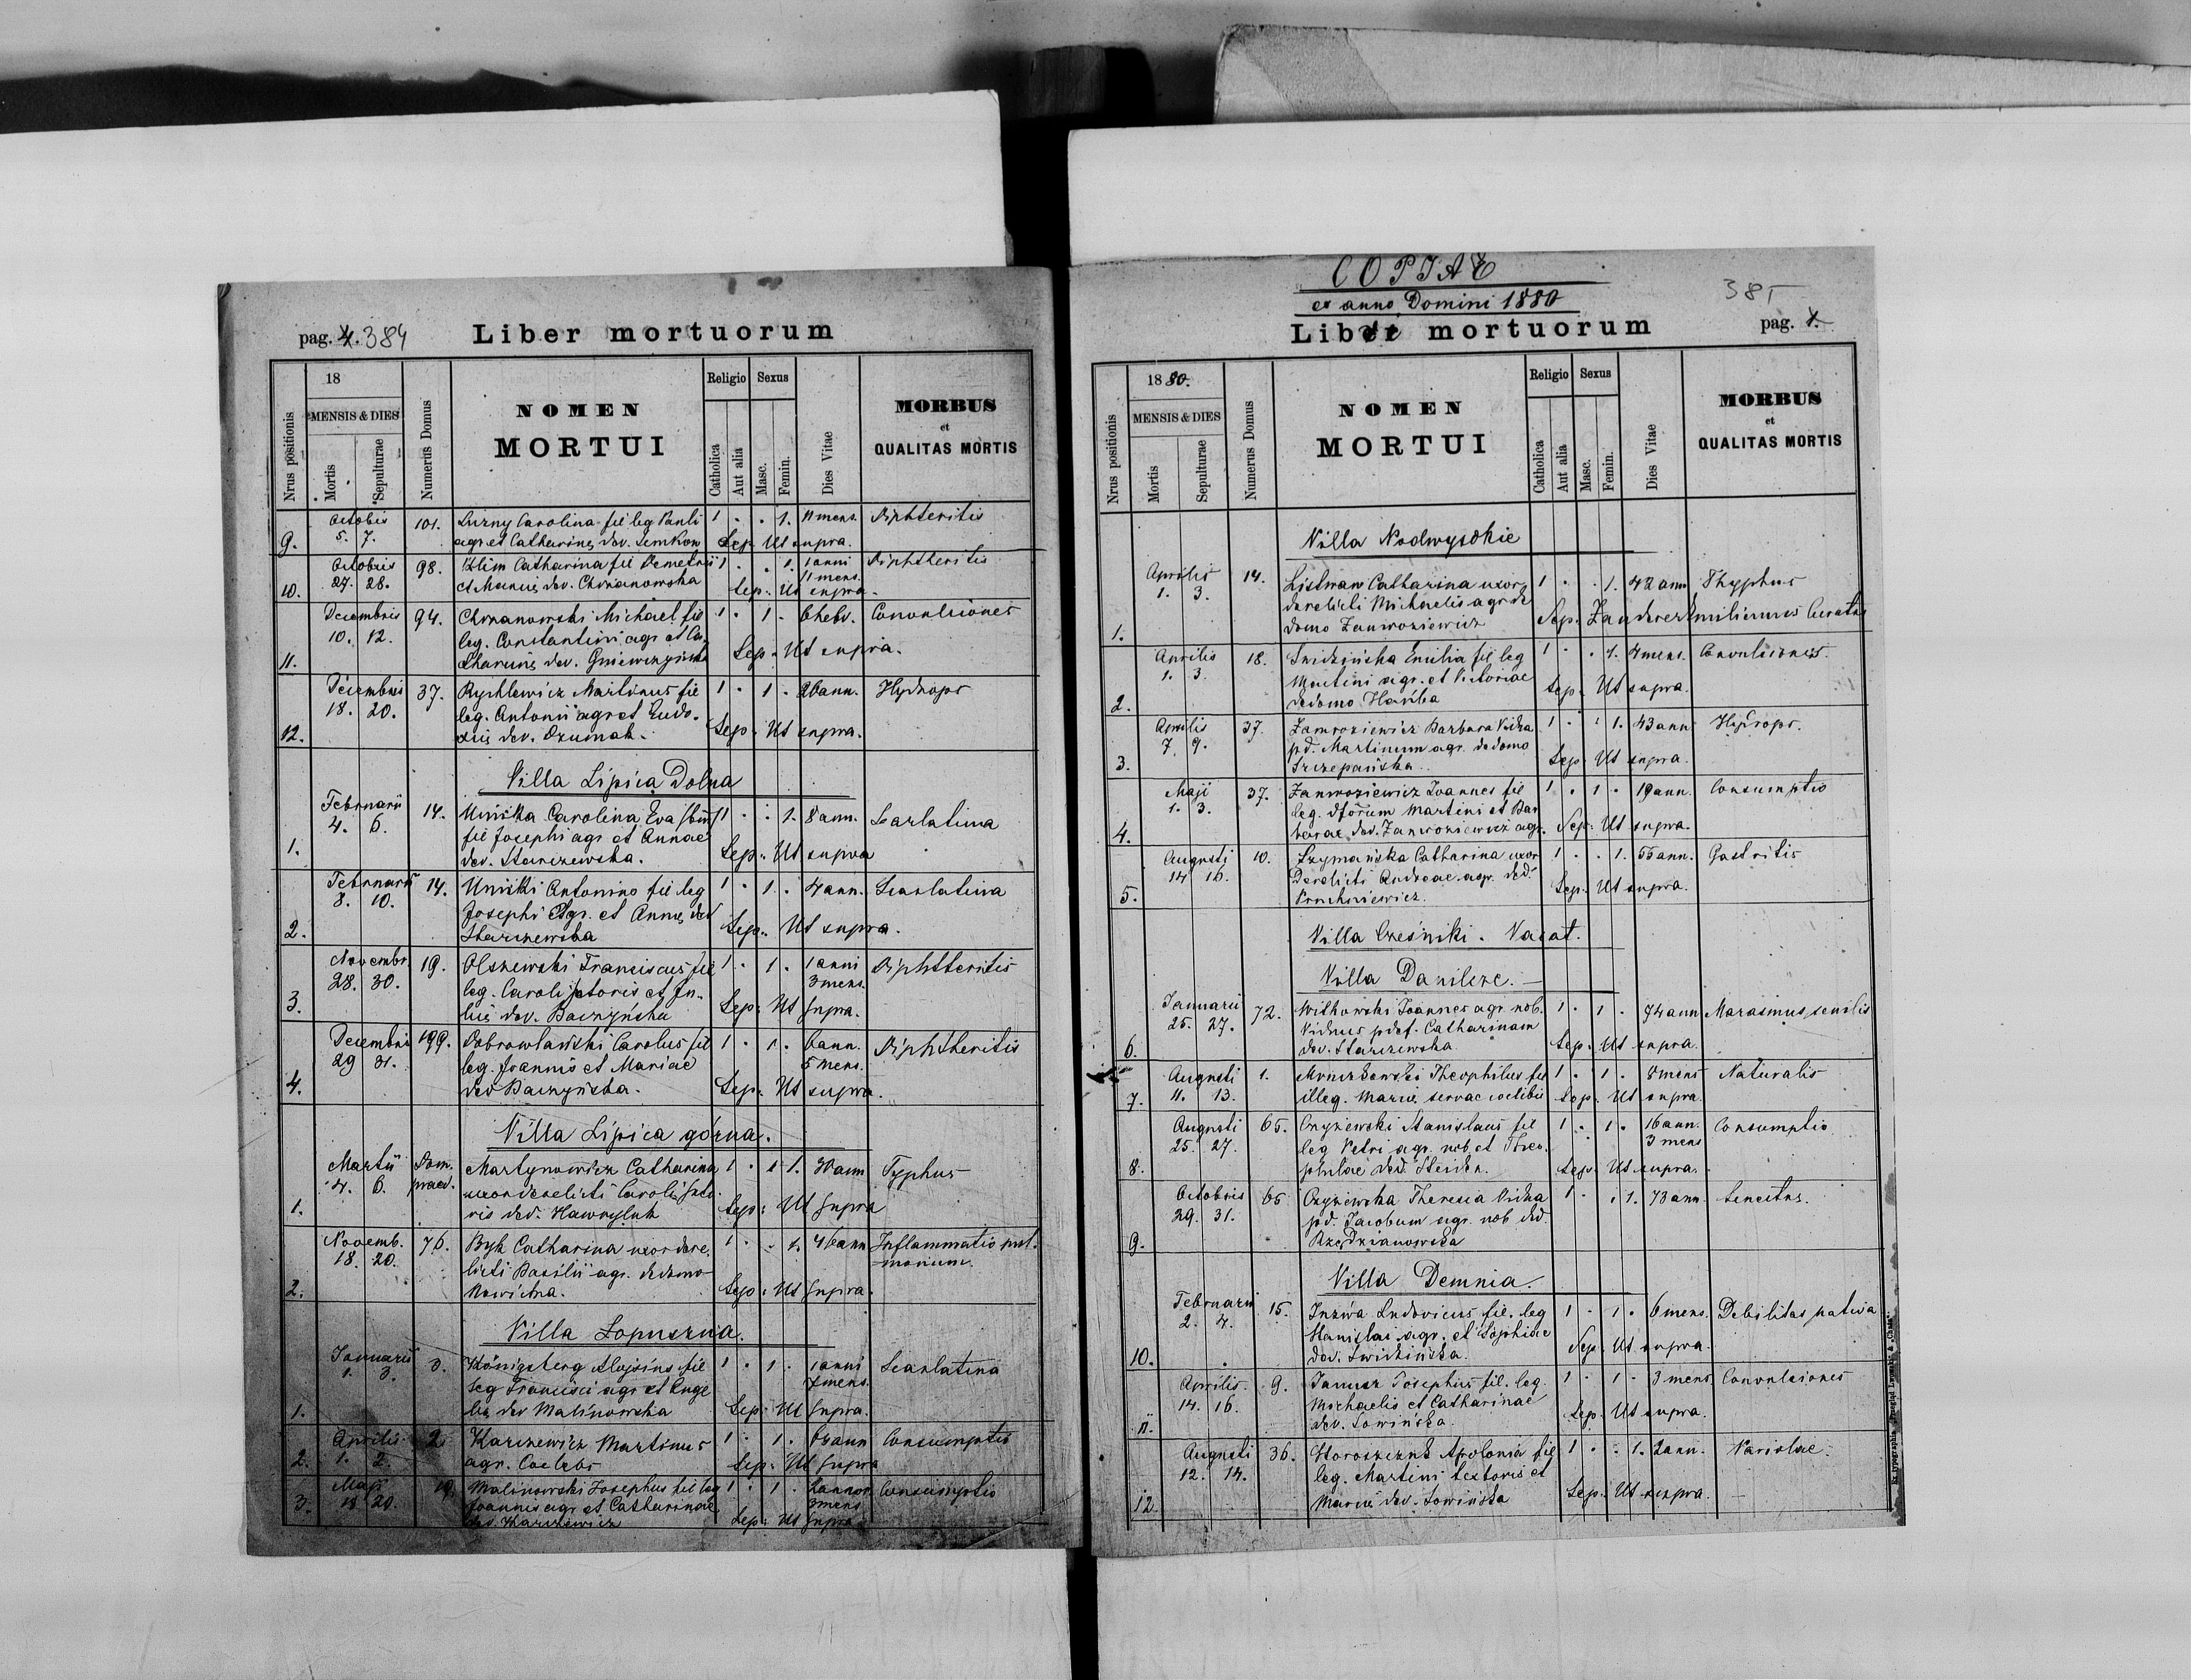 pag. 4. 384
Liber mortuorum
Nrus positionis
18
MENSIS & DIES
Mortis
Sepulturae
Numerus Domus
NOMEN
MORTUI
Religio
Catholica
Aut alia
Sexus
Masc.
Femin.
Dies Vitae
MORBUS
et
QUALITAS MORTIS
9. Octobis 5. 7. 101. Carolina fil leg Pauli 1 . . 1. 11 mens. Diphteritis
agr et Catharinę dev. Semkow Sep. Ut supra.
10. Octobris 27. 28. 98. Klim Catharina fil Demetrii 1 . . 1. 1 anni 11 mens. Diphtheritis
et Mariæ dev. Chrzanowska Sep. Ut supra.
11. Decembris 10. 12. 94. Chrzanowski Michael fil 1 . 1 . 6 hebd. Convulsiones
leg. Constantini agr et Ca-
tharinę dev. Gniewczyńska Sep. Ut supra.
12. Decembris 18. 20. 37. Rychlewicz Martinus fil 1 . 1 . 26 ann. Hydrops
leg. Antonii agr et Eudo-
xię dev. Sep. Ut supra.
Villa Lipica Dolna
1. Februarii 4. 6. 14. Unička Carolina Eva 1 . . 1. 8 ann. Scarlatina
fil Josephi agr et Annae
dev. Starczewska. Sep. Ut supra
2. Februarii 8. 10. 14. Unicki Antonino fil leg 1 . 1 . 4 ann. Scarlatina
Josephi agr. et Annę dev
Starczewska Sep. Ut supra.
3. Novembr. 28. 30. 19. Olszewski Franciscus fil 1 . 1 . 1 anni 3 mens. Diphtheritis
leg. Caroli sutoris et Ju-
lię dev. Baczyńska Sep. Ut supra.
4. Decembris 29 31. 199. Dobrowlański Carolus fil 1 . 1 . 6 ann. 5 mens. Diphtheritis
leg. Joannis et Mariae
dev Baczyńska. Sep. Ut supra.
Villa Lipica górna.
1. Martii 4. 6. Dom. praed. Martynowicz Catharina 1 . 1 1. 30 ann Typhus
uxor derelicti Caroli suto-
ris ded. Hawryluk Sep: Ut supra
2. Novemb. 18. 20. 76. Byk Catharina uxor dere- 1 . . 1. 46 ann Inflammatio pul-
licti Basilii agr. de domo monum.
Sep. Ut supra.
Villa Lopuszna.
1. Januarii 1. 3. 3. Königsberg Aloysius fil 1 . 1 . 1 anni 7 mens. Scarlatina
leg Francisci agr et Ange
lię dev Malinowska Sep: Ut supra.
2. Aprilis 1. 2. 2. Karczewicz Martinus 1 . 1 . ann Consumptio
agr. Coelebs Sep: Ut supra
3. Maji 18 20. 19. Malinowski Josephus fil leg 1 . 1 . 2 annor 3 mens Consumptio
Joannis agr et Catharinae
dev. Karczewicz Sep: Ut supra
COPIAE
ex anno Domini 1880
385
Liber mortuorum
pag. 1.
Nrus positionis
1880.
MENSIS & DIES
Mortis
Sepulturae
Numerus Domus
NOMEN
MORTUI
Religio
Catholica
Aut alia
Sexus
Masc.
Femin.
Dies Vitae
MORBUS
et
QUALITAS MORTIS
Villa Nadwysokie
1. Aprilis 1. 3. 14. Listwan Catharina uxor 1 . . 1. 42 ann Thyphus
derelicti Michaelis agr de
domo Zamroziewicz Sep. Zauderer Emilianus Curatus
2. Aprilis 1. 3. 18. Swidzińska Emilia fil leg 1 . . 1. 4 mens. Convulsiones.
Martini agr. et Victoriae
de domo Hańba Sep. Ut supra.
3. Aprilis 7. 9. 37. Zamroziewicz Barbara Vidua 1 . . 1. 43 ann Hydrops.
pd. Martinum agr. de domo
Szczepańska. Sep. Ut supra.
4. Maji 1. 3. 37. Zamroziewicz Joannes fil 1 . 1 . 19 ann. Consumptio
leg. dforum Martini et Bar
barae dev. Zamroziewicz agr. Sep. Ut supra.
5. Augusti 14 16. 10. Szymańska Catharina uxor 1 . . 1. 55 ann. Gastritis
Derelicti Andreae agr. ded.
Prochniewicz. Sep. Ut supra.
Villa Cześniki. Vacat.
Villa Danilcze.
6. Januarii 25. 27. 72. Witkowski Joannes agr. nob. 1 . 1 . 74 ann Marasmus senilis
Viduus pdef. Catharinam
dev. Starczewska Sep. Ut supra.
7. Augusti 11. 13. 1. Theophilus fil 1 . 1 . 8 mens Naturalis
illeg. Marię servae coelibis Sep. Ut supra.
8. Augusti 25. 27. 65. Czyżewski Stanislaus fil 1 . 1 . 16 ann. 3 mens Consumptio
leg Petri agr. nob et Theo-
philae ded. Sep. Ut supra.
9. Octobris 29. 31. 65 Czyżewska Theresia Vidua 1 . . 1. 73 ann. Senectus.
pd. Jacobum agr. nob ded.
Rzędzianowska
Villa Demnia.
10. Februarii 2. 4. 15. Inzwa Ludovicus fil. leg 1 . 1 . 6 mens. Debilitas nativa
Stanislai agr. et Sophiae
dev. Swidzińska. Sep. Ut supra.
11. Aprilis 14. 16. 9. Janusz Josephus fil. leg. 1 . 1 . 3 mens. Convulsiones
Michaelis et Catharinae
dev. Sowińska. Sep. Ut supra.
12. Augusti 12. 14. 36. Apolonia fil 1 . . 1. 2 ann. Variolae
leg. Martini textoris et
Marię dev. Sowińska Sep. Ut supra.
Ex typographia „Przegląd Lwowski" &